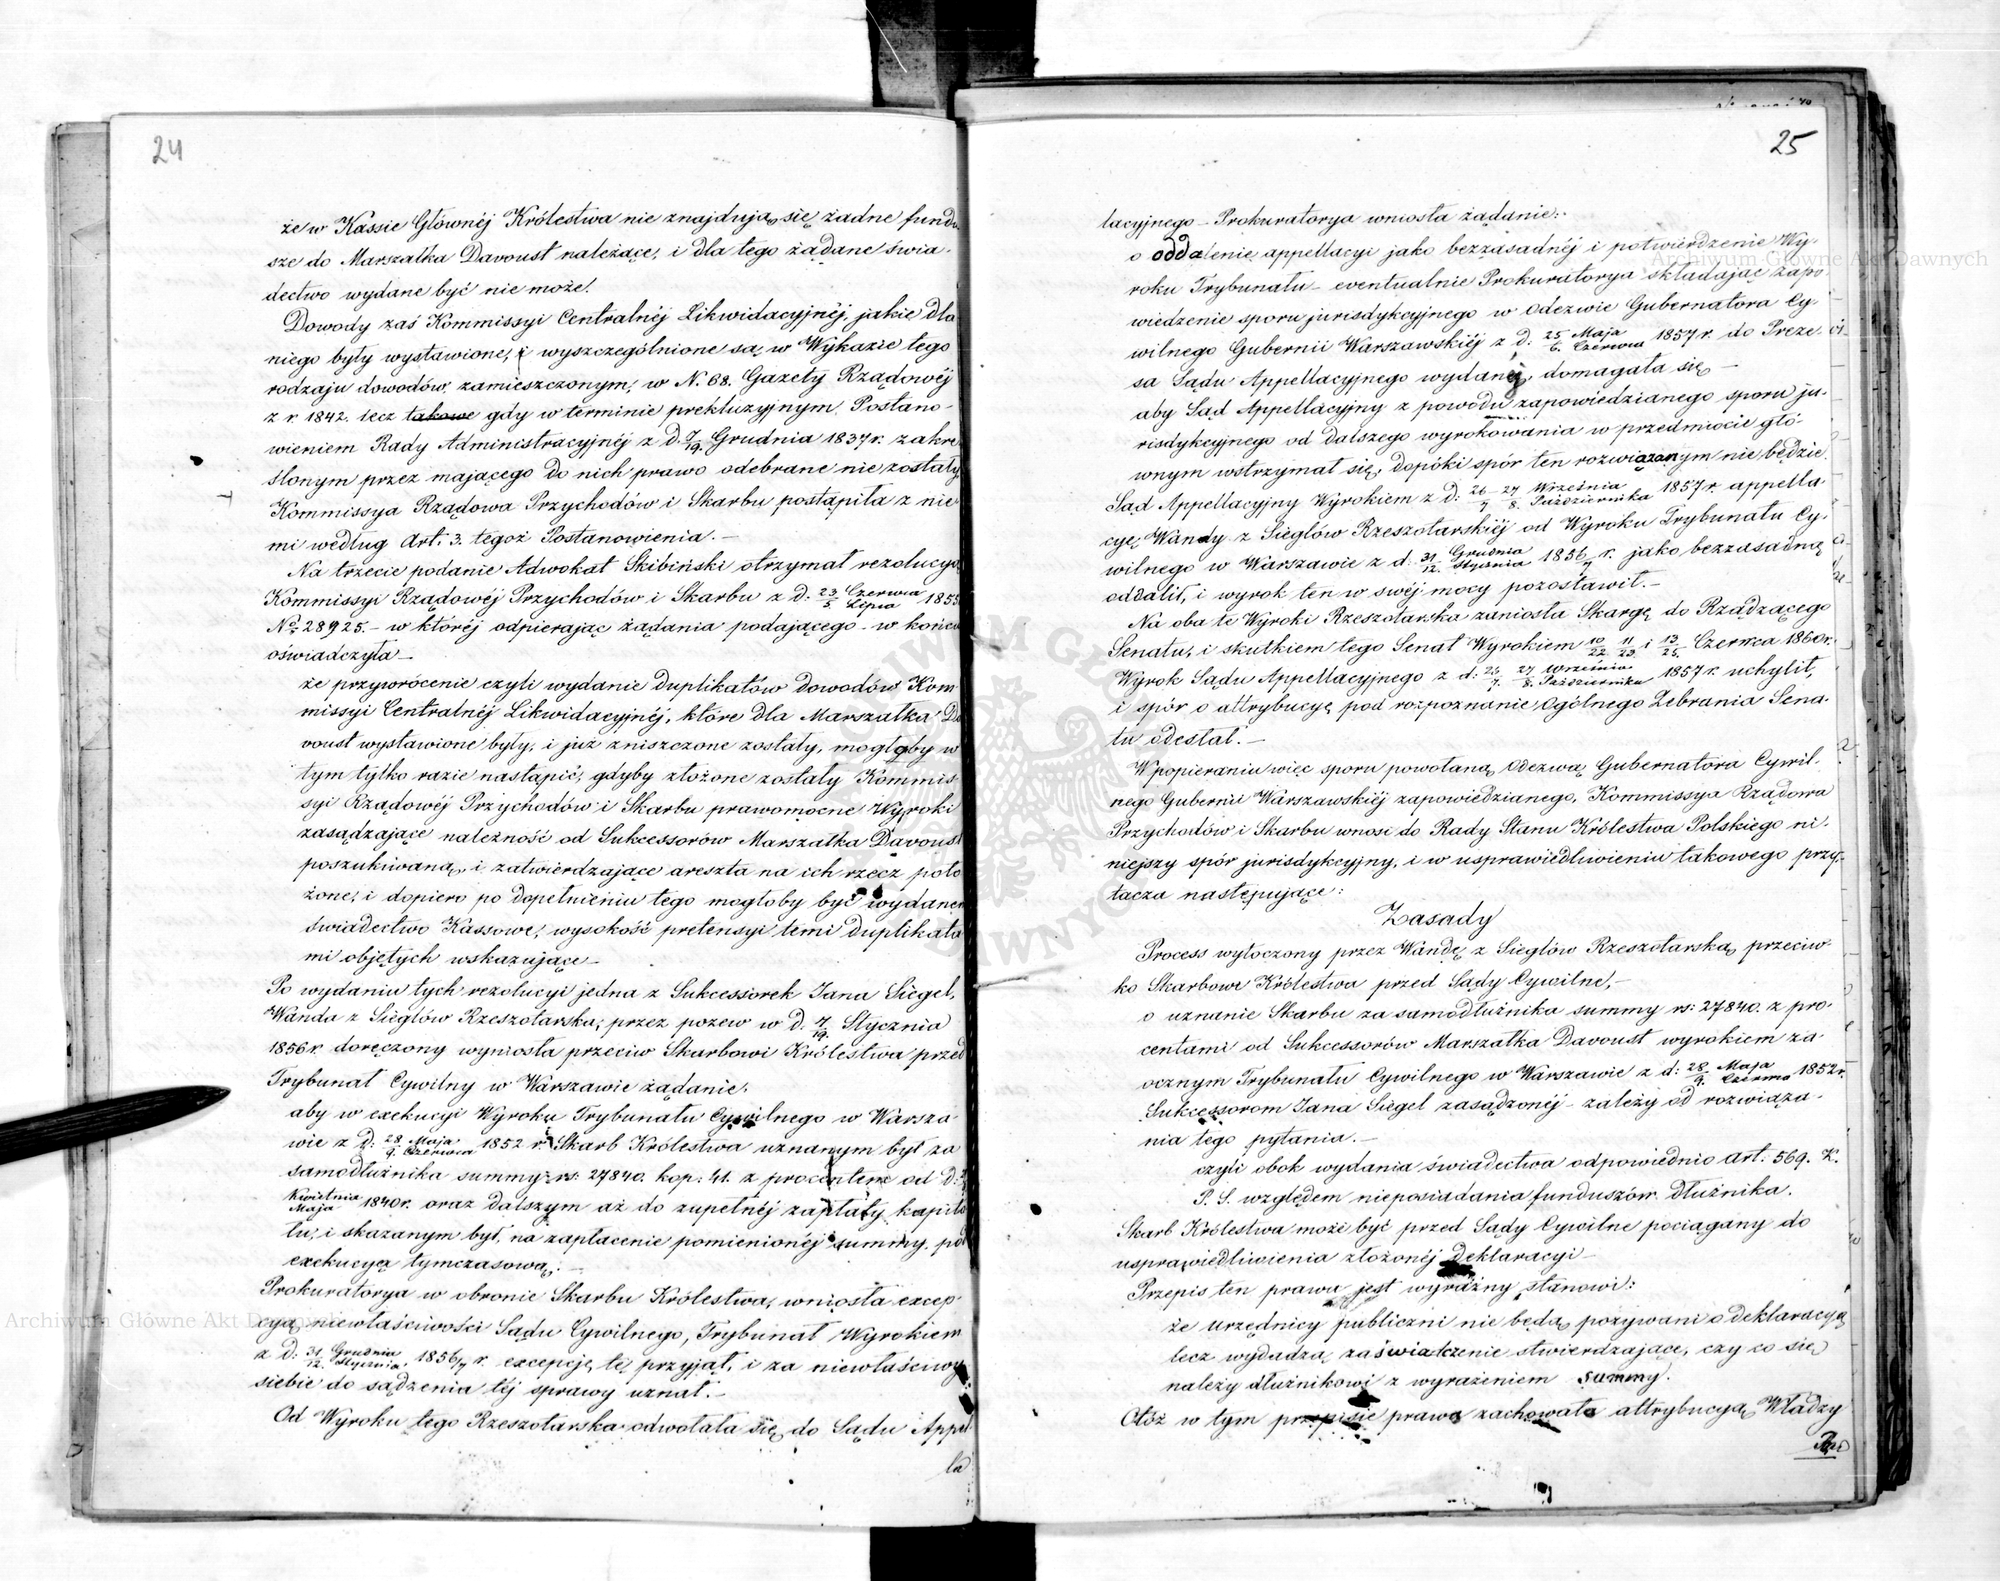 24
że w Kassie Głównéj Królestwa nie znajdują się żadne fundu
sze do Marszałka Davoust należące, i dla tego żądane świa-
dectwo wydane być nie może.
Dowody zaś Kommissyi Centralnéj Likwidacyjnéj, jakie dla
niego były wystawione, i wyszczególnione są w Wykazie tego
rodzaju dowodów, zamieszczonym, w N. 68. Gazety Rządowéj
z r. 1842. lecz takowe gdy w terminie prekluzyjnym, Postano-
wieniem Rady Administracyjnéj z d. 7/19. Grudnia 1837 r. zakre
ślonym przez mającego do nich prawo odebrane nie zostały,
Kommissya Rządowa Przychodów i Skarbu postąpiła z nie
mi według Art. 3. tegoż Postanowienia.—
Na trzecie podanie Adwokat Skibiński otrzymał rezolucyą
Kommissyi Rządowéj Przychodów i Skarbu z d: 23 Czerwca / 5 Lipca 1855
No 28925.— w któréj odpierając żądania podającego — w końcu
oświadczyła—
że przywrócenie czyli wydanie duplikatów dowodów Kom-
missyi Centralnéj Likwidacyjnéj, które dla Marszałka Da
voust wystawione były, i już zniszczone zostały, mogłoby w
tym tylko razie nastąpić, gdyby złożone zostały Kommis-
syi Rządowéj Przychodów i Skarbu prawomocne Wyroki
zasądzające należność od Sukcessorów Marszałka Davoust
poszukiwaną, i zatwierdzające areszta na ich rzecz poło
żone, i dopiero po dopełnieniu tego mogłoby być wydanem
świadectwo Kassowe, wysokość pretensyi temi duplikata
mi objętych wskazujące—
Po wydaniu tych rezolucyi jedna z Sukcessorek Jana Siegel,
Wanda z Sieglów Rzeszotarska, przez pozew w d. 7/19. Stycznia
1856 r. doręczony wyniosła przeciw Skarbowi Królestwa przed
Trybunał Cywilny w Warszawie żądanie.
aby w exekucyi Wyroku Trybunału Cywilnego w Warsza-
wie z d: 28 Maja / 9. Czerwca 1852 r. Skarb Królestwa uznanym był za
samodłużnika summy rs: 27840. kop: 41. z procentem od d:
Kwietnia / Maja 1840 r. oraz dalszym aż do zupełnéj zapłaty kapita
łu, i skazanym był, na zapłacenie pomienionéj summy pod
exekucyą tymczasową.—
Prokuratorya w obronie Skarbu Królestwa, wniosła excep-
cyą niewłaściwości Sądu Cywilnego, Trybunał Wyrokiem
z d: 31 Grudnia / 12. Stycznia 1856/7 r. excepcję tę przyjął, i za niewłaściwy
siebie do sądzenia téj sprawy uznał.—
Od Wyroku tego Rzeszotarska odwołała się do Sądu Appel
la
25
lacyjnego — Prokuratorya wniosła żądanie:
o oddalenie appellacyi jako bezzasadnéj i potwierdzenie Wy-
roku Trybunału — eventualnie Prokuratorya składając zapo-
wiedzenie sporu jurisdykcyjnego w Odezwie Gubernatora Cy
wilnego Gubernii Warszawskiéj z d: 25 Maja / 6. Czerwca 1857 r. do Preze
sa Sądu Appellacyjnego wydanéj, domagała się —
aby Sąd Appellacyjny z powodu zapowiedzianego sporu ju-
risdykcyjnego od dalszego wyrokowania w przedmiocie głó-
wnym wstrzymał się, dopóki spór ten rozwiązanym nie będzie.
Sąd Appellacyjny Wyrokiem z d: 26 27 Września / 7 8. Października 1857 r. appella-
cyę Wandy z Sieglów Rzeszotarskiéj od Wyroku Trybunału Cy-
wilnego w Warszawie z d: 31 Grudnia / 12. Stycznia 1856/7 r. jako bezzasadną
oddalił, i wyrok ten w swéj mocy pozostawił.—
Na oba te Wyroki Rzeszotarska zaniosła Skargę do Rządzącego
Senatu, i skutkiem tego Senat Wyrokiem 10/22 11/23. i 13/25. Czerwca 1860 r.
Wyrok Sądu Appellacyjnego z d: 26 27 Września / 7. 8. Października 1857 r. uchylił,
i spór o attrybucyę pod rozpoznanie Ogólnego Zebrania Sena-
tu odesłał.—
W popieraniu więc sporu powołaną Odezwą Gubernatora Cywil-
nego Gubernii Warszawskiéj zapowiedzianego, Kommissya Rządowa
Przychodów i Skarbu wnosi do Rady Stanu Królestwa Polskiego ni-
niejszy spór jurisdykcyjny, i w usprawiedliwieniu takowego przy-
tacza następujące:
Zasady
Process wytoczony przez Wandę z Sieglów Rzeszotarską przeciw-
ko Skarbowi Królestwa przed Sądy Cywilne,—
o uznanie Skarbu za samodłużnika summy rs: 27840. z pro-
centami od Sukcessorów Marszałka Davoust wyrokiem za-
ocznym Trybunału Cywilnego w Warszawie z d: 28 Maja / 9. Czerwca 1852 r.
Sukcessorom Jana Siegel zasądzonéj — zależy od rozwiąza-
nia tego pytania.—
czyli obok wydania świadectwa odpowiednio art: 569. K.
P. S. względem nieposiadania funduszów dłużnika.
Skarb Królestwa może być przed Sądy Cywilne pociągany do
usprawiedliwienia złożonéj deklaracyi—
Przepis ten prawa jest wyraźny stanowi:
że urzędnicy publiczni nie będą pozywani o deklaracyą
lecz wydadzą zaświadczenie stwierdzające, czy co się
należy dłużnikowi z wyrażeniem summy.
Otóż w tym przepisie prawa zachowała attrybucyą Władzy
Archiwum Główne Akt Dawnych
Archiwum Główne Akt Dawnych